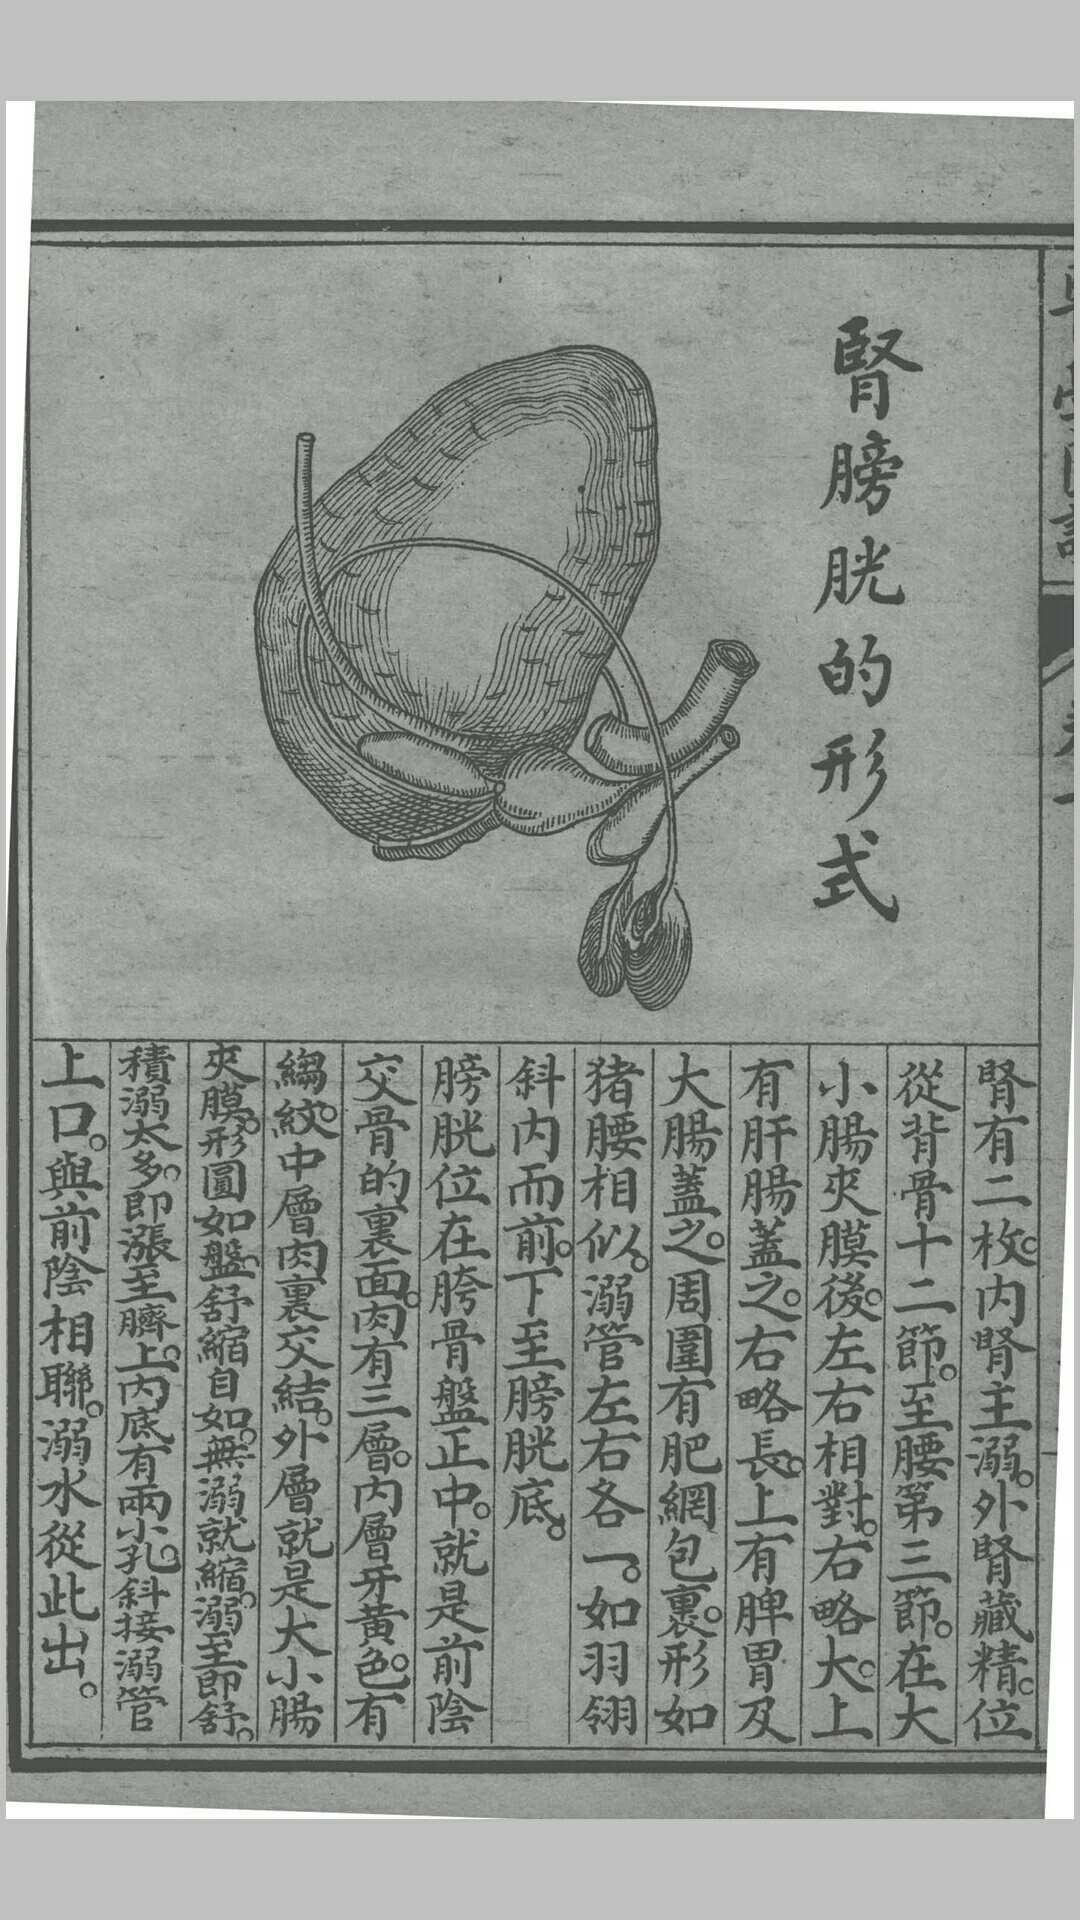 腎膀胱的形式
腎有二枚。內腎主溺。外腎藏精。位
從背骨十二節。至腰第三節。在大
小腸夾膜後。左右相對。右略大。上
有肝腸蓋之。右略長。上有脾胃及
大腸蓋之。周圍有肥網包裏。形如
猪腰相似。溺管左右各一。如羽翎
斜内而前。下至膀胱底。
膀胱位在胯骨盤正中。就是前陰
交骨的裏面。肉有三層。内層牙黃色。有
縐紋。中層肉裏交結。外層就是大小腸
夾膜。形圓如盤。舒縮自如。無溺就縮。溺至即舒。
積溺太多。即漲至臍上。內底有兩小孔。斜接溺管
上口。與前陰相聯。溺水從此出。